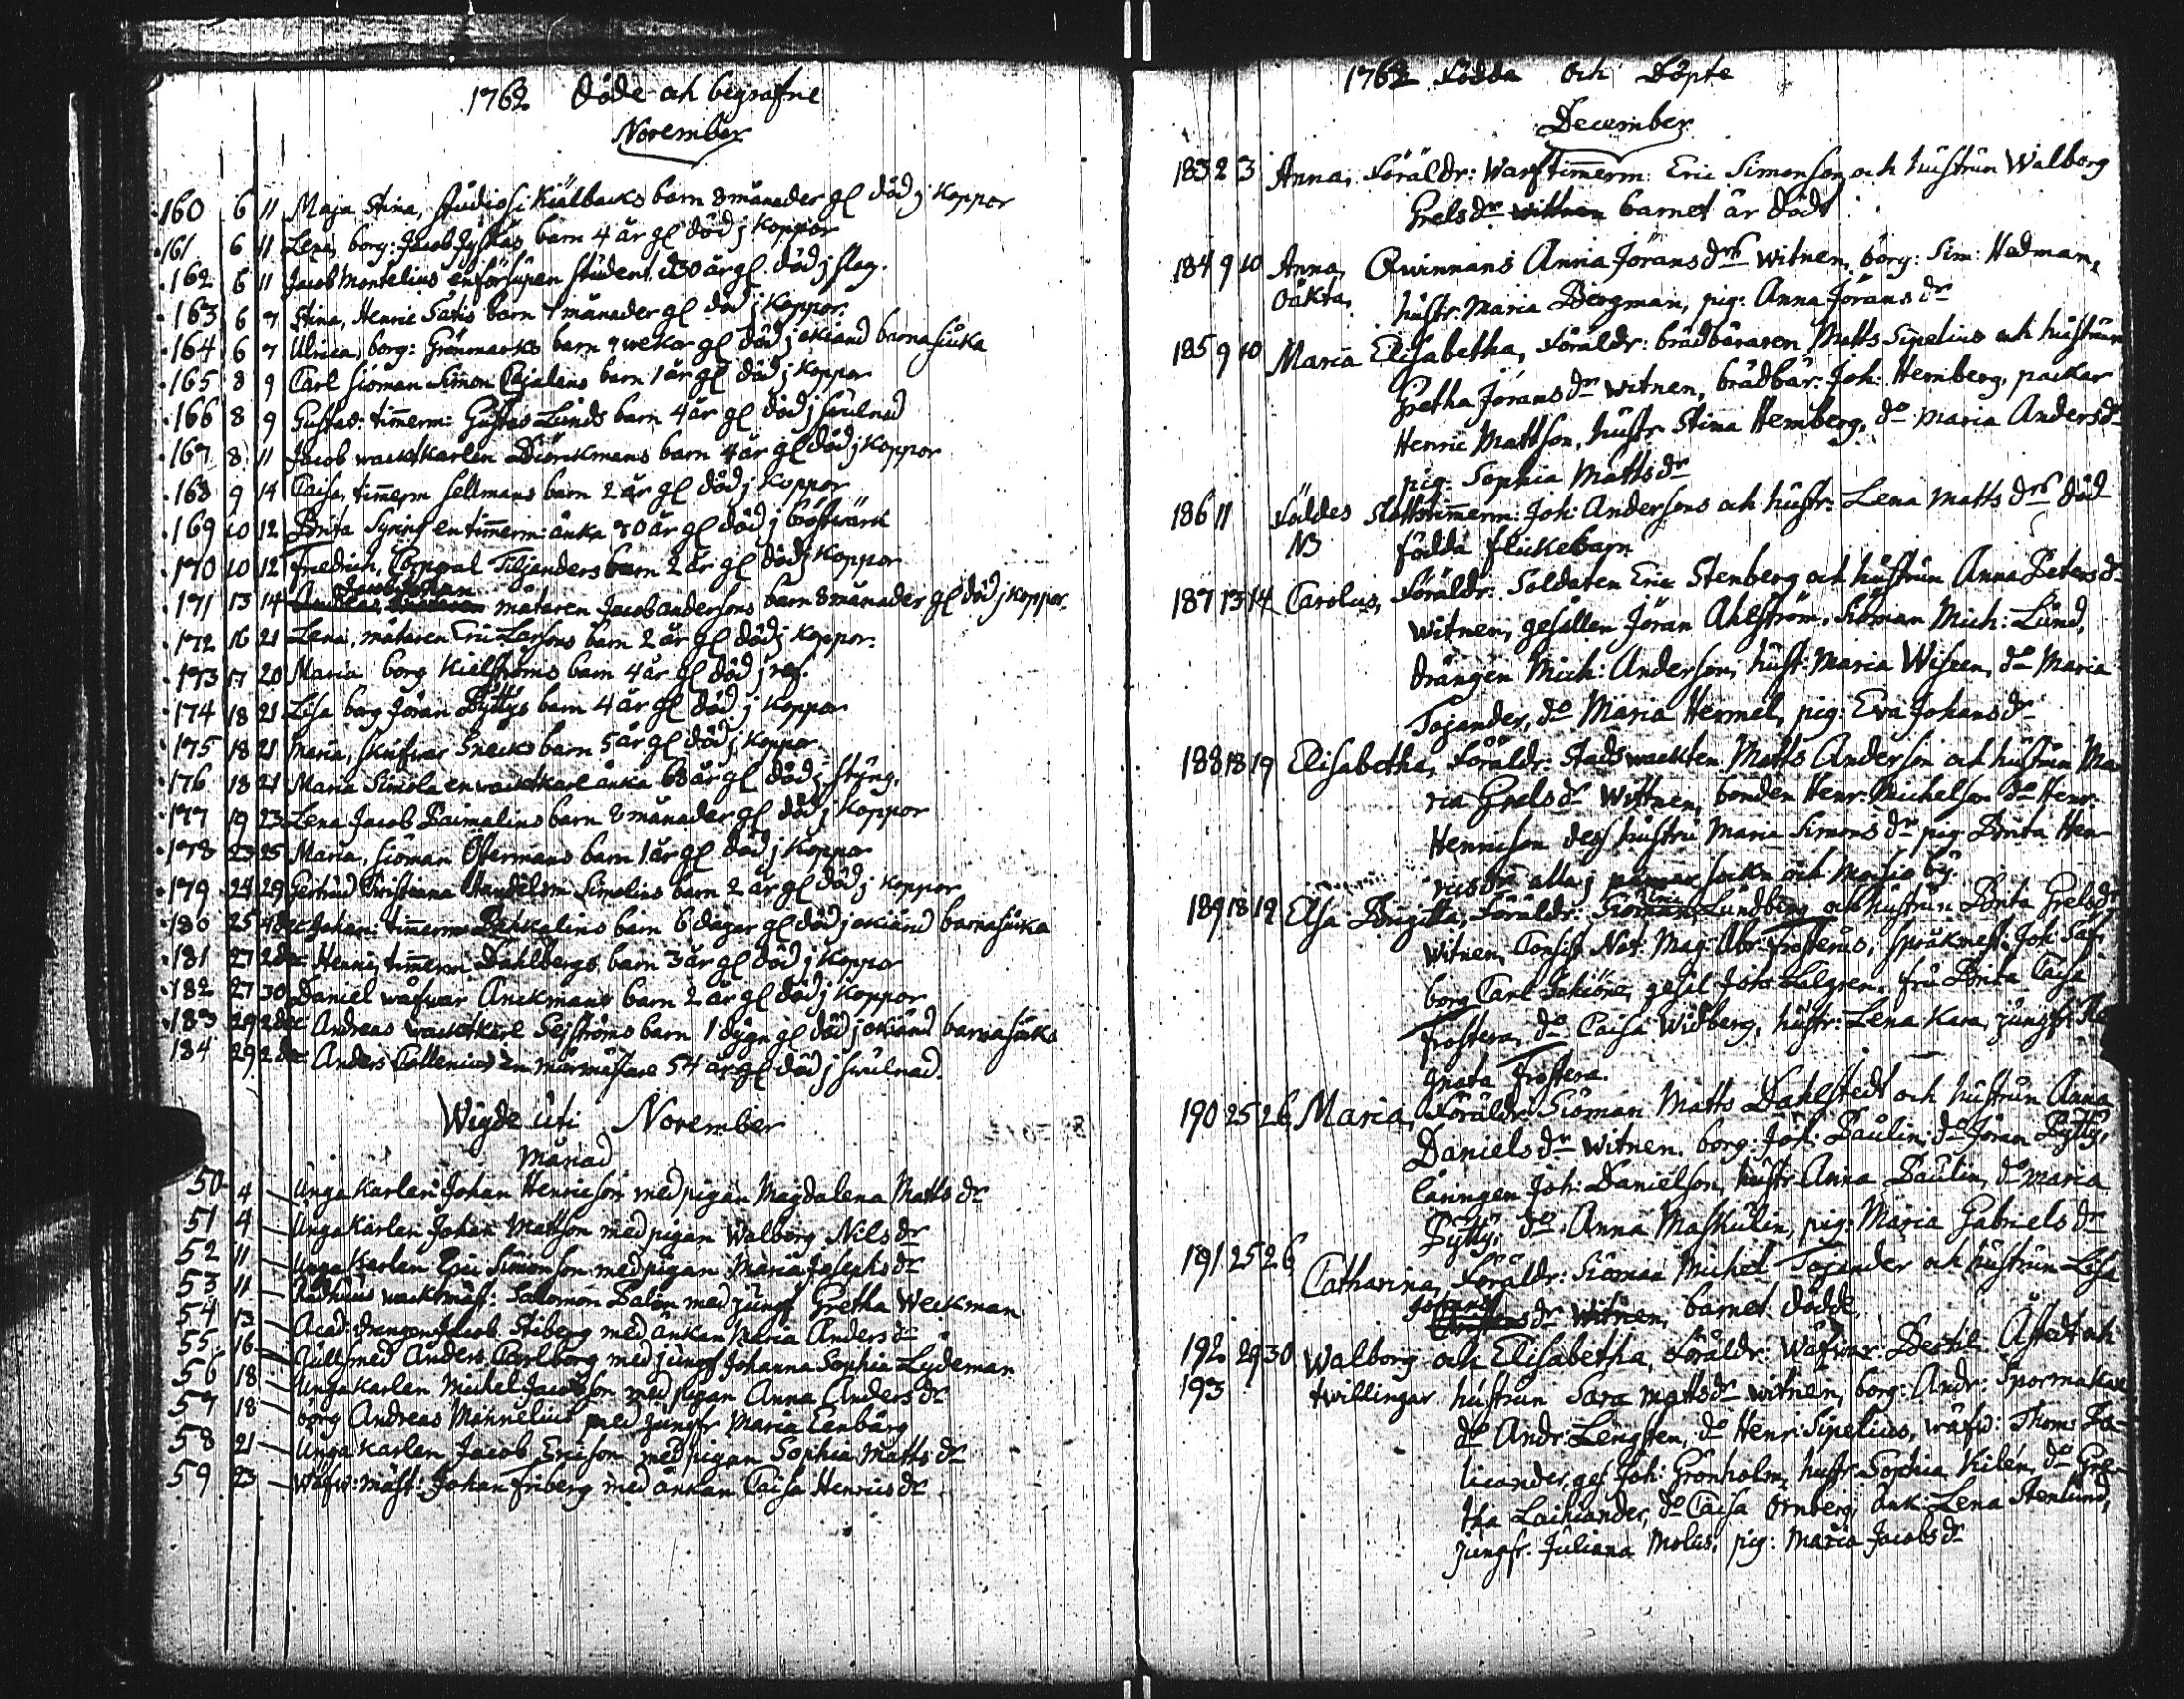 1762 Döde och begrafne
November
160 6 11 Maja Stina, studiosi Kiälbacks barn 8 månader gl död j Koppor
161 6 11 Lena, borg: Jacob barn 4 år gl död j Koppor
162 6 11 Jacob Montelius en försupen student 30 år gl. död j slag.
163 6 7 Stina, Henric Sätis barn 7 månader gl död j Koppor.
164 6 7 Ulrica, borg: Grönmarks barn 9 wekor gl död j okiänd barnasiuka
165 8 9 Carl sioman Simon Cajalens barn 1 år gl död j Koppor
166 8 9 Gustav: timerm: Gustav Lunds barn 4 år gl död j swulnad
167 8 11 Jacob wacktkarlen Biörckmans barn 4 år gl död j Koppor
168 9 14 Caisa, timerm Sellmans barn 2 år gl död j Koppor
169 10 12 Brita en timerm: änka 70 år gl död j bröstwärk
170 10 12 Friedrich, Corporal Tiljanders barn 2 år gl död j Koppor
Jacob Johan
171 13 14 Andreas mätaren Jacob andersons barn 8 månader gl död j Koppor.
172 16 21 Lena, mätaren Eric Larsons barn 2 år gl död j Koppor.
173 17 20 Maria borg Kielströms barn 4 år gl död j ref.
174 18 21 Lisa borg Jöran Pyttys barn 4 år gl död j Koppor
175 18 21 Maria, skrifvar Snecks barn 5 år gl död j Koppor.
176 18 21 Maria Simola en wacktkarl änka 68 år gl död j styng.
177 19 23 Lena Jacob Paimalins barn 2 månader gl död j Koppor
178 23 25 Maria, sioman Östermans barn 1 år gl död j Koppor
179 24 29 Gertrud Christiana Handelsm Simelius barn 2 år gl död j Koppor
180 25 4 dec Johan: timerm Pahkalins barn 6 dagar gl död j okiänd barnasiuka
181 27 2 dec Henric timerm Dahlbergs barn 3 år gl död j Koppor
182 27 30 Daniel wäfwar Anckmans barn 2 år gl död j Koppor
183 29 2 dec Andreas wacktkarl Sejströms barn 1 dygn gl död j okiänd barnasiuka
184 29 2 dec Anders Collenius en murmästare 54 år gl död j swulnad.
Wigde uti November
månad
50 4 — Unga Karlen Johan Henricson med pigan Magdalena Matts dr
51 4 — Unga Karlen Johan Mattson med pigan Walborg Nils dr
52 11 — Unga Karlen Eric Simonson med pigan Maria Josephs dr
53 11 — Rådhus wacktmäst: Salomon Palén med jungf Gretha Weckman
54 13 — Acad: drengen Jacob Stiberg med änkan Maria Anders dr
55 16 — Gullsmed Anders Carlborg med jungf Johanna Sophia Lydeman
56 18 — Unga Karlen Michel Jacobson med pigan Anna Anders dr
57 18 — borg Andreas Mannelius med jungfr Maria Eenbärg
58 21 — Unga Karlen Jacob Ericson med pigan Sophia Matts dr
59 23 — Wäfw: mäst: Johan Friberg med änkan Caisa Henrics dr
1762 Födda och Döpte
December
183 2 3 Anna, Föräldr: Warfstimerm: Eric Simonson och hustrun Walborg
Grels dr witnen barnet är dödt
184 9 10 Anna, Qwinnans Anna Jörans drs witnen, borg: Sim: Hedman,
oäkta, hustr: Maria Bergman, pig: Anna Jörans dr
185 9 10 Maria Elisabetha, Föräldr: brädbäraren Matts Sipelius och hustrun
Gretha Jörans dr witnen, brädbär: Joh: Hemberg, packar
Henric Mattson, hustr: Stina Hemberg, do Maria Anders dr
pig: Sophia Matts dr
186 11 Föddes Slottstimerm: Joh: Andersons och hustr: Lena Matts drs död
NB födda flickebarn
187 13 14 Carolus, Föräldr: Soldaten Eric Stenberg och hustrun Anna Peters dr
witnen, gesällen Jöran Ahlström, Sioman Mich: Lund,
drängen Mich: Anderson, hust: Maria Wiseen, do Maria
Tojander, do Maria Hermel, pig: Eva Johans dr
188 18 19 Elisabetha, Föräldr: Stadswackten Matts Anderson och hustrun Ma
ria Grels dr Wittnen, bonden Henr: Michelson do Henr:
Henricson dess hustru Maria Simons dr pig Brita Hen
rics dr alla j sockn och Moisio by
189 18 19 Elsa Brigitta, Föräldr: Sioman Lundberg och hustrun Brita Grels dr
witnen, Consist Not: Mag: Abr: Frosterus, språkmest: Joh Säf
borg Carl Schöne, gesel Joh: Lalgren, fru Brita Caisa
Frostera, do Caisa Widberg, hustr: Lena Kara, jungfr: Re
gnata Frostera.
190 25 26 Maria, Föräldr: Sioman Matts Dahlstedt och hustrun Anna
Daniels dr witnen. borg: Joh: Paulin, do Jöran Pytty,
läringen Joh: Danielson, hustr: Anna Paulin, do Maria
Pytty, do Anna Maskulin, pig: Maria Gabriels dr
191 25 26 Catharina, Föräldr: Sioman Michel Tojander och hustrun Lisa
Johans
dr witnen, barnet dödde
192 29 30 Walborg och Elisabetha, Föräldr: Wäfwar Bertil Åstedt och
193 twillingar hustrun Sara Matts dr witnen, borg: Andr: Spormakare
do Andr: Lengsten, do Henr: Sipelius, wäfw: Thom: Pa-
licander, ges Joh: Grönholm, hustr: Sophia Kilén, do Gre-
tha Laihiander, do Caisa Örnberg, änk: Lena Stenlund,
jungfr: Juliana Molus, pig: Maria Jacobs dr